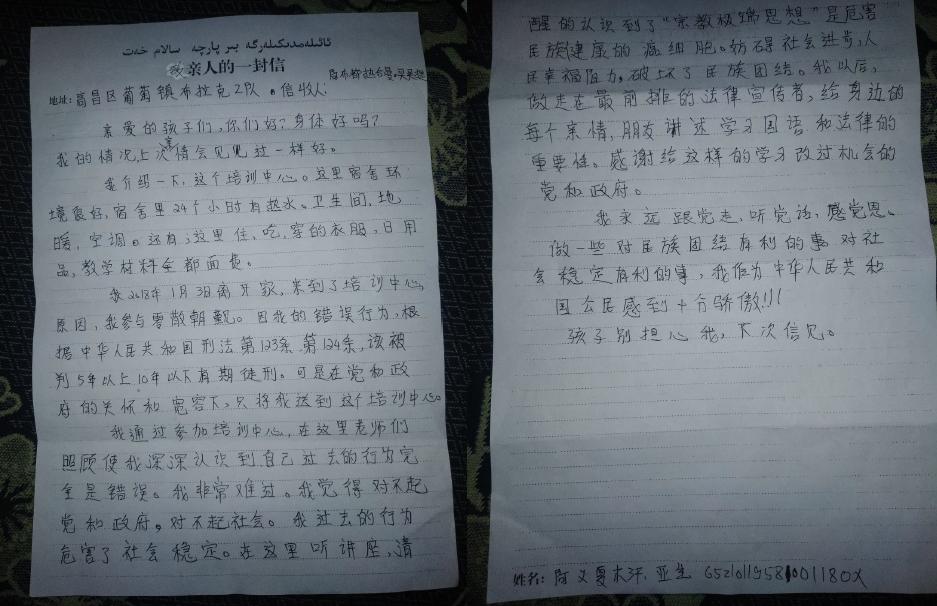 ئائىلەمدىكىلەرگە بىر پارچە سالام خەت
致亲人的一封信
地址:高昌区葡萄镇布拉克2队。信收人:
亲爱的孩子们,你们好?身体好吗?
我的情况上次情会见见过一样好。
我介绍一下,这个培训中心。这里宿舍环
境良好,宿舍里24个小时有热水。卫生间,地
暖,空调。还有,这里住、吃,穿的衣服,日用
品,教学材料全都面费。
我2018年1月3日离开家,来到了培训中心,
原因,我参与零散朝觐。因我的错误行为,根
据中华人民共和国刑法第123条、第124条,该被
判5年以上10年以下有期徒刑。可是在党和政
府的关怀和宽容下,只将我送到这个培训中心。
我通过参加培训中心,在这里老师们
照顾使我深深认识到自己过去的行为完
全是错误。我非常难过。我觉得对不起
党和政府,对不起社会。我过去的行为
危害了社会稳定。在这里听讲座,清
醒的认识到了“宗教极端思想”是危害
民族健康的癌细胞。妨碍社会进步,人
民幸福阻力。破坏了民族团结。我以后,
做走在最前排的法律宣传者,给身边的
每个亲情,朋友讲述学习国语和法律的
重要性。感谢给这样的学习改过机会的
党和政府。
我永远跟党走,听党话,感党恩。
做一些对民族团结有利的事,对社
会稳定有利的事,我作为中华人民共和
国公民感到十分骄傲!!!
孩子别担心我,下次信见。
姓名:阿义夏木汗.亚生